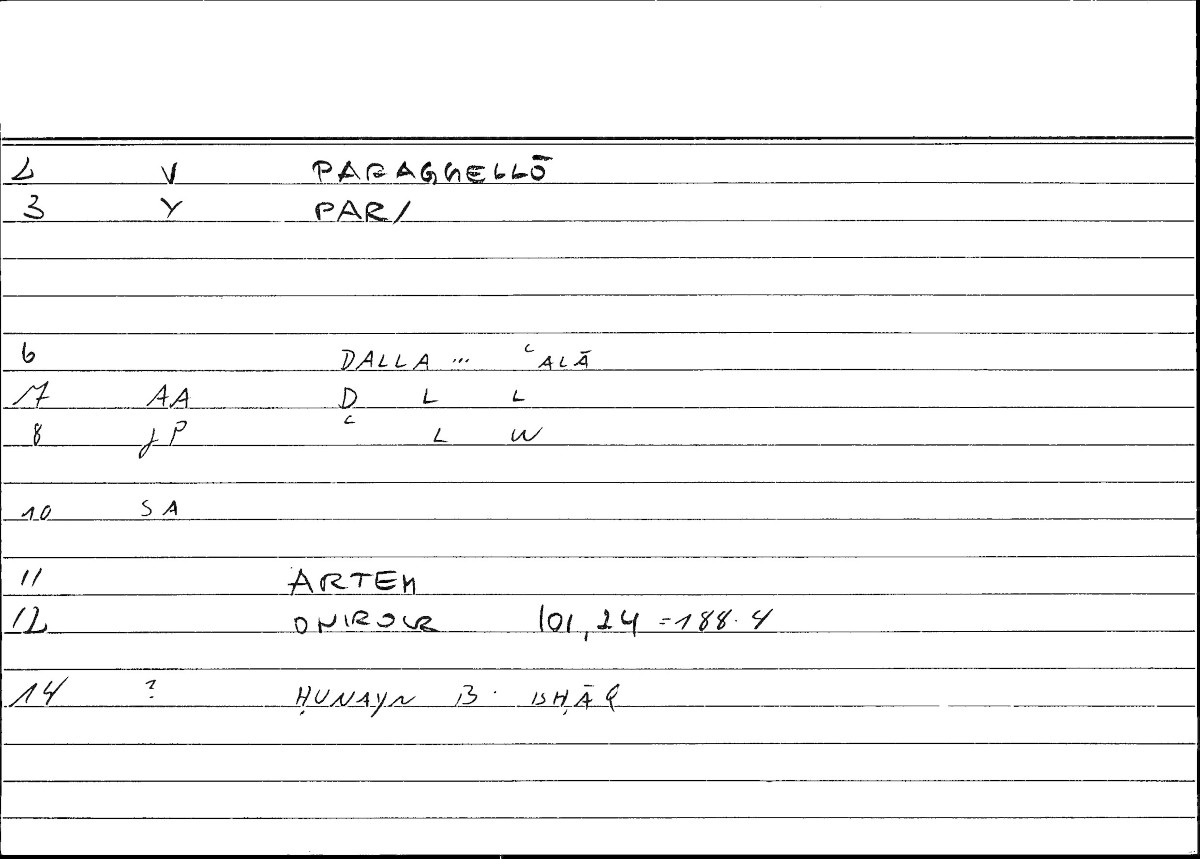 2 V PARAGGELLŌ
3 Y PAR/
6 DALLA ... ʿALĀ
7 AA D L L
8 JP ʿ L W
10 SA
11 ARTEM
12 ONIROCR 101,24 =188.4
14 ? ḤUNAYN B. ISḤĀQ